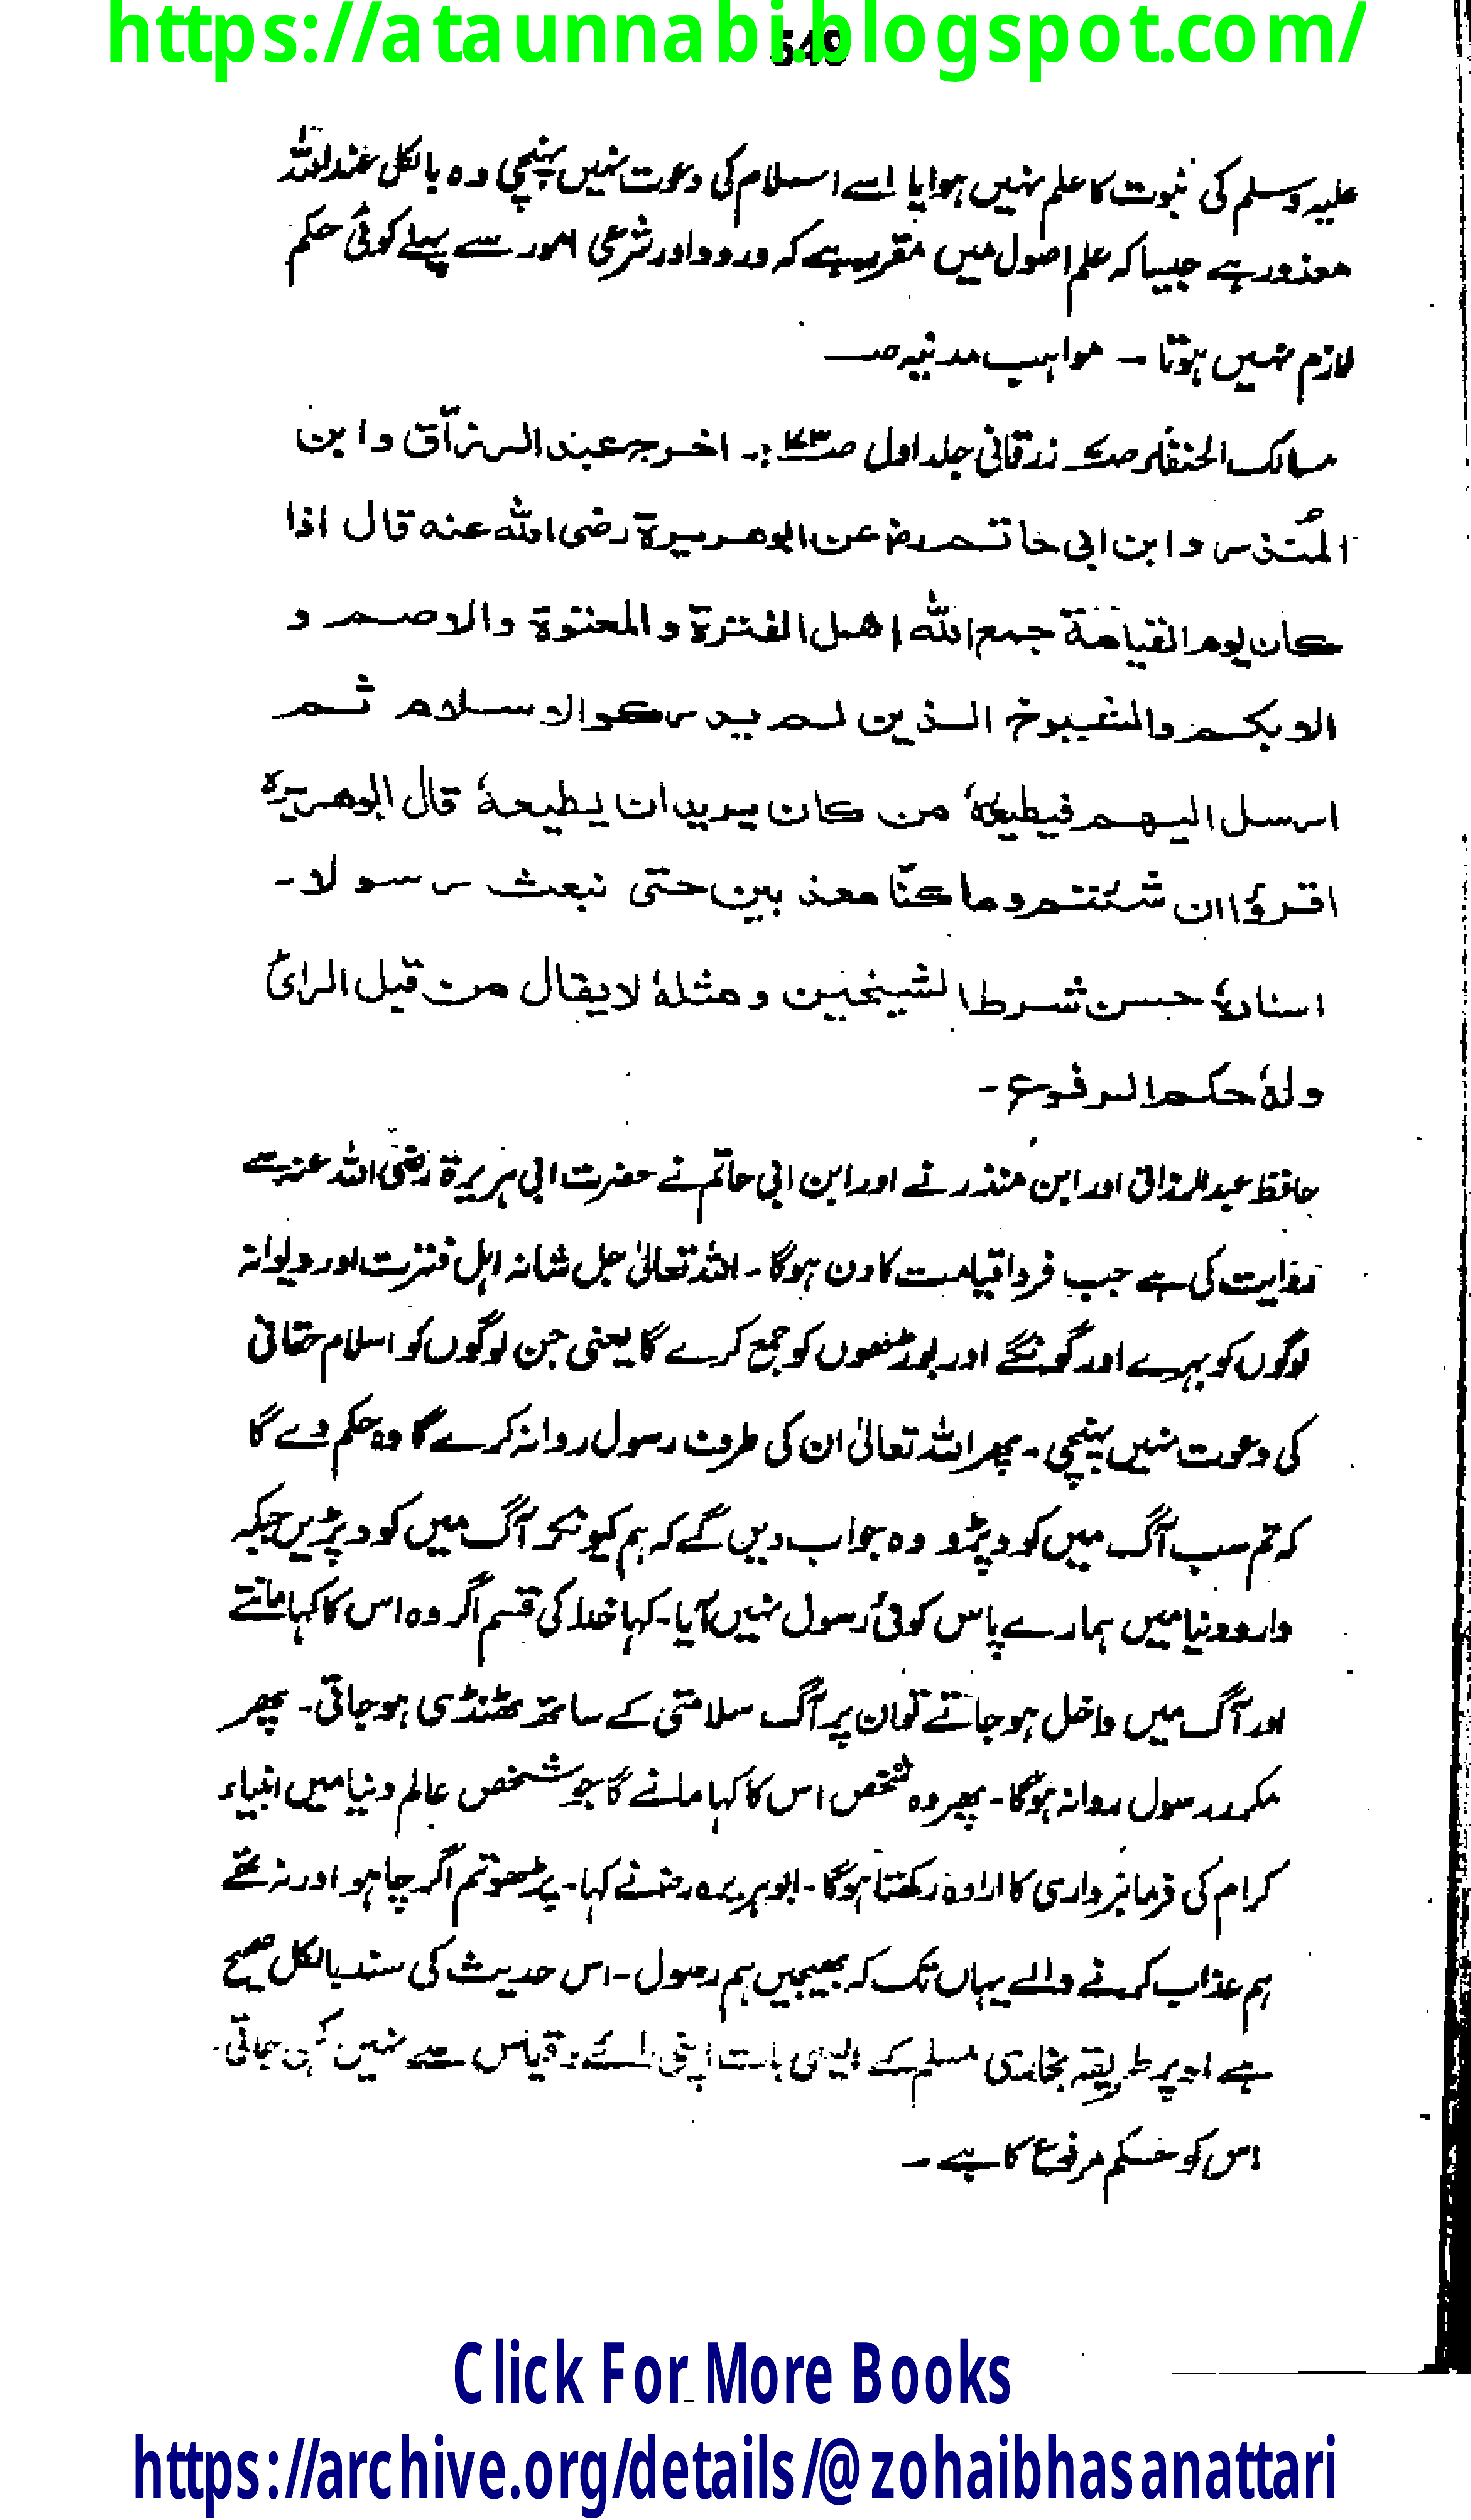 https://ataunnabi.blogspot.com/
549
علیہ وسلم کی نبوت کا علم نہیں ہوا یا اسے اسلام کی دعوت نہیں پہنچی وہ بالکل عند اللہ
معذور ہے جیسا کہ علم اصول میں مقرر ہے کہ ورود اور شرعی امور سے پہلے کوئی حکم
لازم نہیں ہوتا ۔ مواہب مدنیہ صـ
مسالک الحنفاء صـ زرقانی جلد اول صـ :۔ اخرج عبد الرزاق وابن
المنذر وابن ابی حاتم عن ابوھریرۃ رضی اللہ عنہ قال اذا
کان یوم القیامۃ جمع اللہ اھل الفترۃ والمعتوۃ والاصم و
الابکم والشیوخ الذین لم یدرکوا الاسلام ثم
ارسل الیھم فیطیعہٗ من کان یرید ان یطیعہٗ قال ابوھریرہ
اقرؤا ان شئتم وما کنّا معذبین حتی نبعث رسولا۔
اسنادہٗ حسن شرط الشیخین ومثلہٗ لایقال من قبل الرائ
ولہٗ حکم المرفوع ۔
حافظ عبدالرزاق اور ابن منذر نے اور ابن ابی حاتم نے حضرت ابی ہریرۃ رضی اللہ عنہ سے
روایت کی ہے جب فردا قیامت کا دن ہوگا ۔ اللہ تعالیٰ جل شانہ اہل فترت اور دیوانہ
لوگوں کو بہرے اور گونگے اور بوڑھوں کو جمع کرے گا یعنی جن لوگوں کو اسلام حقانی
کی دعوت نہیں پہنچی ۔ پھر اللہ تعالیٰ ان کی طرف رسول روانہ کرے گا وہ حکم دے گا
کہ تم سب آگ میں کود پڑو وہ جواب دیں گے کہ ہم کیونکر آگ میں کود پڑیں جبکہ
دار دنیا میں ہمارے پاس کوئی رسول نہیں آیا ۔ کہا خدا کی قسم اگر وہ اس کا کہا مانتے
اور آگ میں داخل ہو جاتے تو ان پر آگ سلامتی کے ساتھ ٹھنڈی ہو جاتی ۔ پھر
مکرر رسول روانہ ہوگا ۔ پھر وہ شخص اس کا کہا مانے گا جو شخص عالم دنیا میں انبیاء
کرام کی فرمانبرداری کا ارادہ رکھتا ہوگا ۔ ابوہریرہ رضنے کہا ۔ پڑھو تم اگر چاہو اور نہ تھے
ہم عذاب کرنے والے یہاں تک کہ بھیجیں ہم رسول ۔ اس حدیث کی سند بالکل صحیح
ہے اوپر طریقہ بخاری مسلم کے ایسی بات اپنی رائے وقیاس سے نہیں کہی جاتی ۔
اس کو حکم مرفوع کا ہے ۔
Click For More Books
https://archive.org/details/@zohaibhasanattari